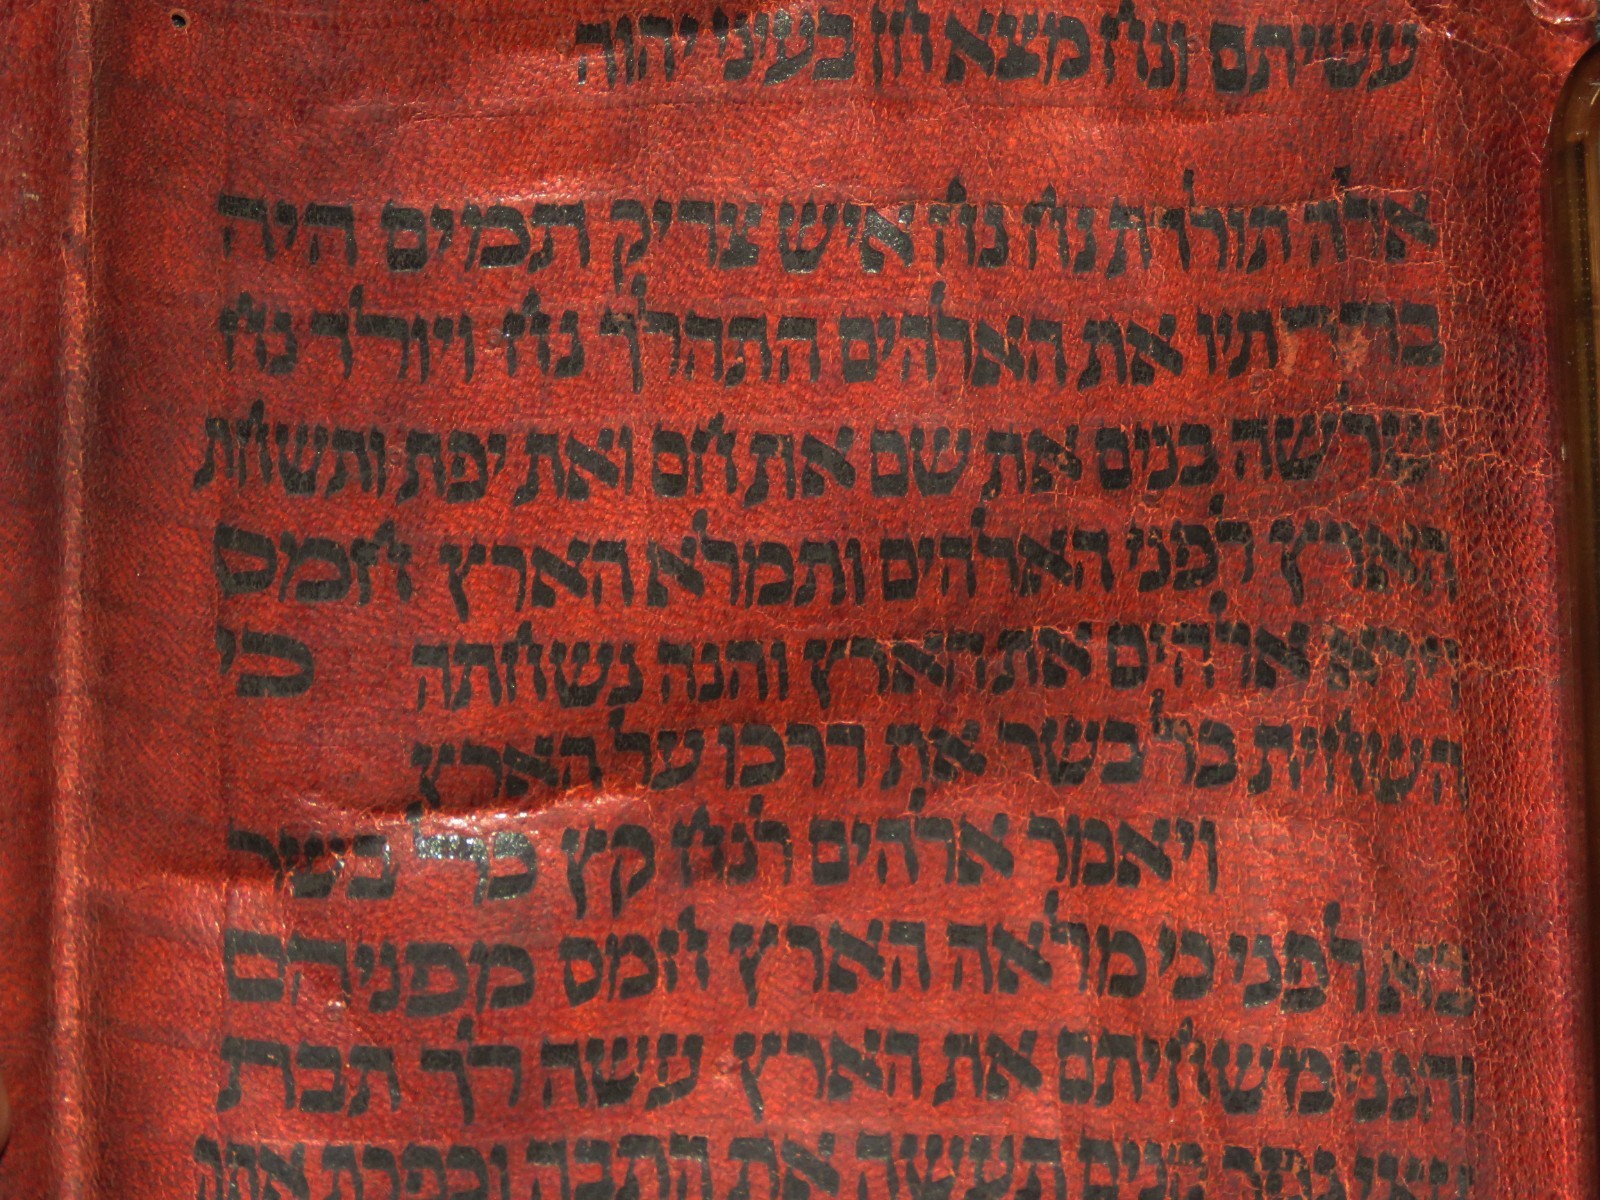 עשיתם ונח מצא חן בעיני יהוה
אלה תולדת נח נח איש צדיק תמים היה
בדרתיו את האלהים התהלך נח ויולד נח
שלשה בנים את שם את חם ואת יפת ותשחת
הארץ לפני האלהים ותמלא הארץ חמס
וירא אלהים את הארץ והנה נשחתה כי
השחית כל בשר את דרכו על הארץ
ויאמר אלהים לנח קץ כל בשר
בא לפני כי מלאה הארץ חמס מפניהם
והנני משחיתם את הארץ עשה לך תבת
עצי גפר קנים תעשה את התבה וכפרת אתה